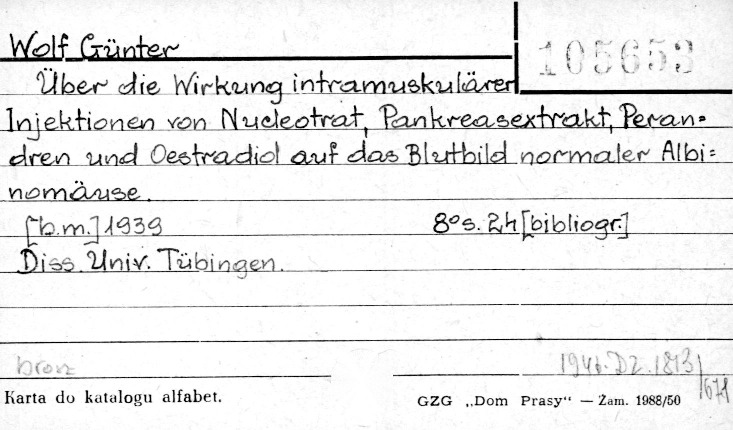 Wolf Günter
105653
Über die Wirkung intramuskulärer
Injektionen von Nucleotrat, Pankreasextrakt, Peran=
dren und Oestradiol auf das Blutbild normaler Albi=
nomäuse.
[b.m.] 1939 8° s. 24 [bibliogr.]
Diss. Univ. Tübingen.
brosz
1946. DZ. 1873/
/671
Karta do katalogu alfabet.
GZG „Dom Prasy“ — Zam. 1988/50